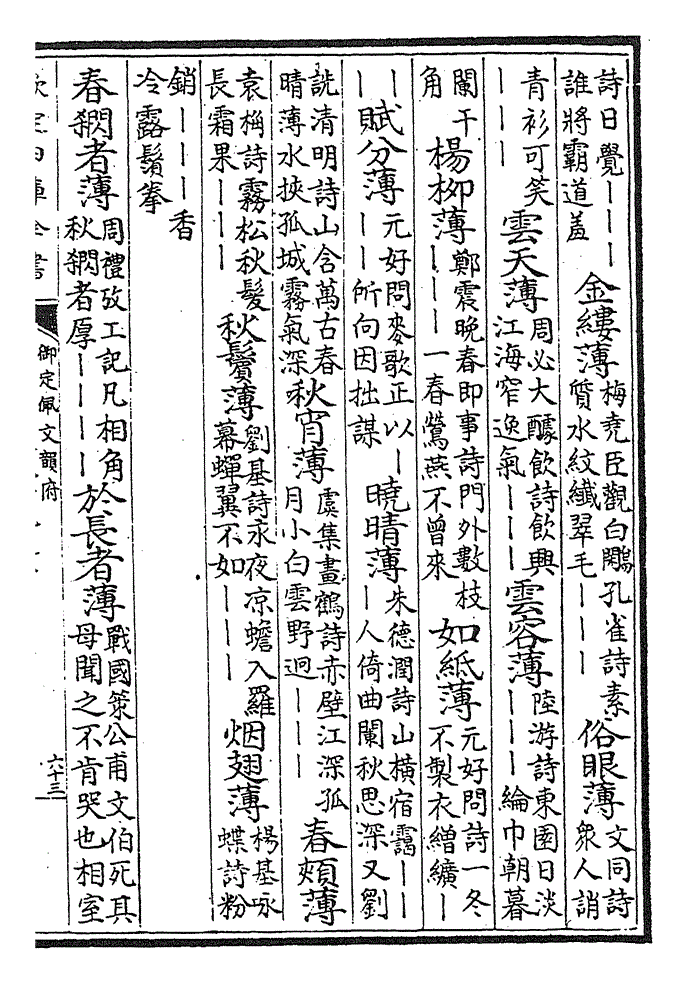 詩日覺｜｜｜誰將霸道蓋 金縷薄 梅堯臣觀白鷴孔雀詩素質水紋纖翠毛｜｜｜ 俗眼薄 文同詩眾人誚
青衫可笑｜｜｜ 雲天薄 周必大醵飲詩飲興江海窄逸氣｜｜｜ 雲容薄 陸游詩東園日淡｜｜｜綸巾朝暮
闌干角 楊柳薄 鄭震晚春即事詩門外數枝｜｜｜一春鶯燕不曾來 如紙薄 元好問詩一冬不製衣繒纊｜
｜｜ 賦分薄 元好問麥歌正以｜｜｜所向因拙謀 曉晴薄 朱德潤詩山橫宿靄｜｜｜人倚曲闌秋思深又劉
詵清明詩山含萬古春晴薄水挾孤城霧氣深 秋宵薄 虞集畫鶴詩赤壁江深孤月小白雲野迥｜｜｜ 春頰薄
袁桷詩霧松秋髮長霜果｜｜｜ 秋鬢薄 劉基詩永夜凉蟾入羅幕蟬翼不如｜｜｜ 烟翅薄 楊基咏蝶詩粉
銷｜｜｜香冷露鬚拳
春閷者薄 周禮攷工記凡相角秋閷者厚｜｜｜｜ 於長者薄 戰國策公甫文伯死其母聞之不肯哭也相室
欽定四庫全書 御定佩文韻府 六十三